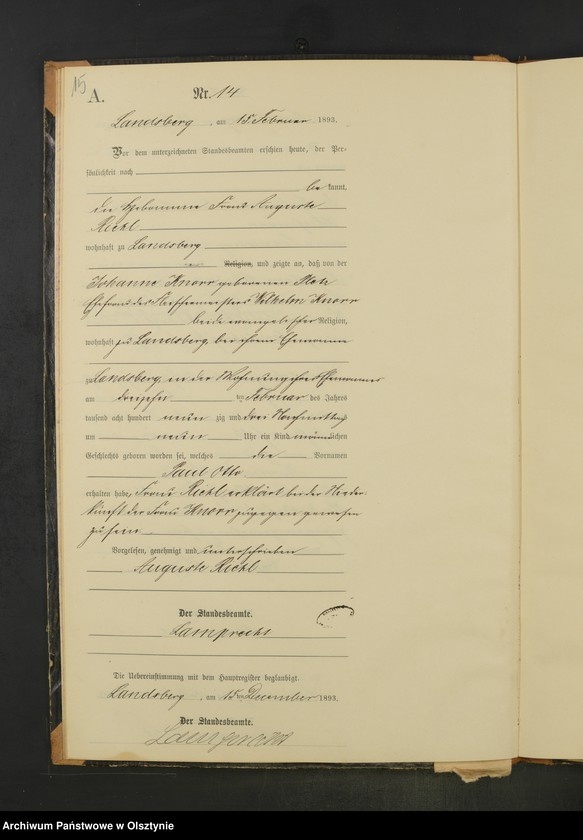 15
A.
Nr. 14
Landsberg, am 15. Februar 1893.
Vor dem unterzeichneten Standesbeamten erschien heute, der Per-
sönlichkeit nach
be kannt,
die Hebamme Frau Auguste
Riehl
wohnhaft zu Landsberg
Religion, und zeigte an, daß von der
Johanne Knorr geborenen
Ehefrau des Wilhelm Knorr
beide evangelischer Religion,
wohnhaft zu Landsberg, bei ihrem Ehemanne
zu Landsberg, in der Wohnung ihres Ehemannes
am dreizehn ten Februar des Jahres
tausend acht hundert neun zig und drei Nachmittags
um neun Uhr ein Kind männlichen
Geschlechts geboren worden sei, welches die Vornamen
Paul Otto
erhalten habe, Frau Riehl erklärt bei der Nieder-
kunft der Frau Knorr zugegen gewesen
zu sein
Vorgelesen, genehmigt und unterschrieben
Auguste Riehl
Der Standesbeamte.
Lamprecht
Die Uebereinstimmung mit dem Hauptregister beglaubigt.
Landsberg, am 15 ten December 1893.
Der Standesbeamte.
Lamprecht
Archiwum Państwowe w Olsztynie